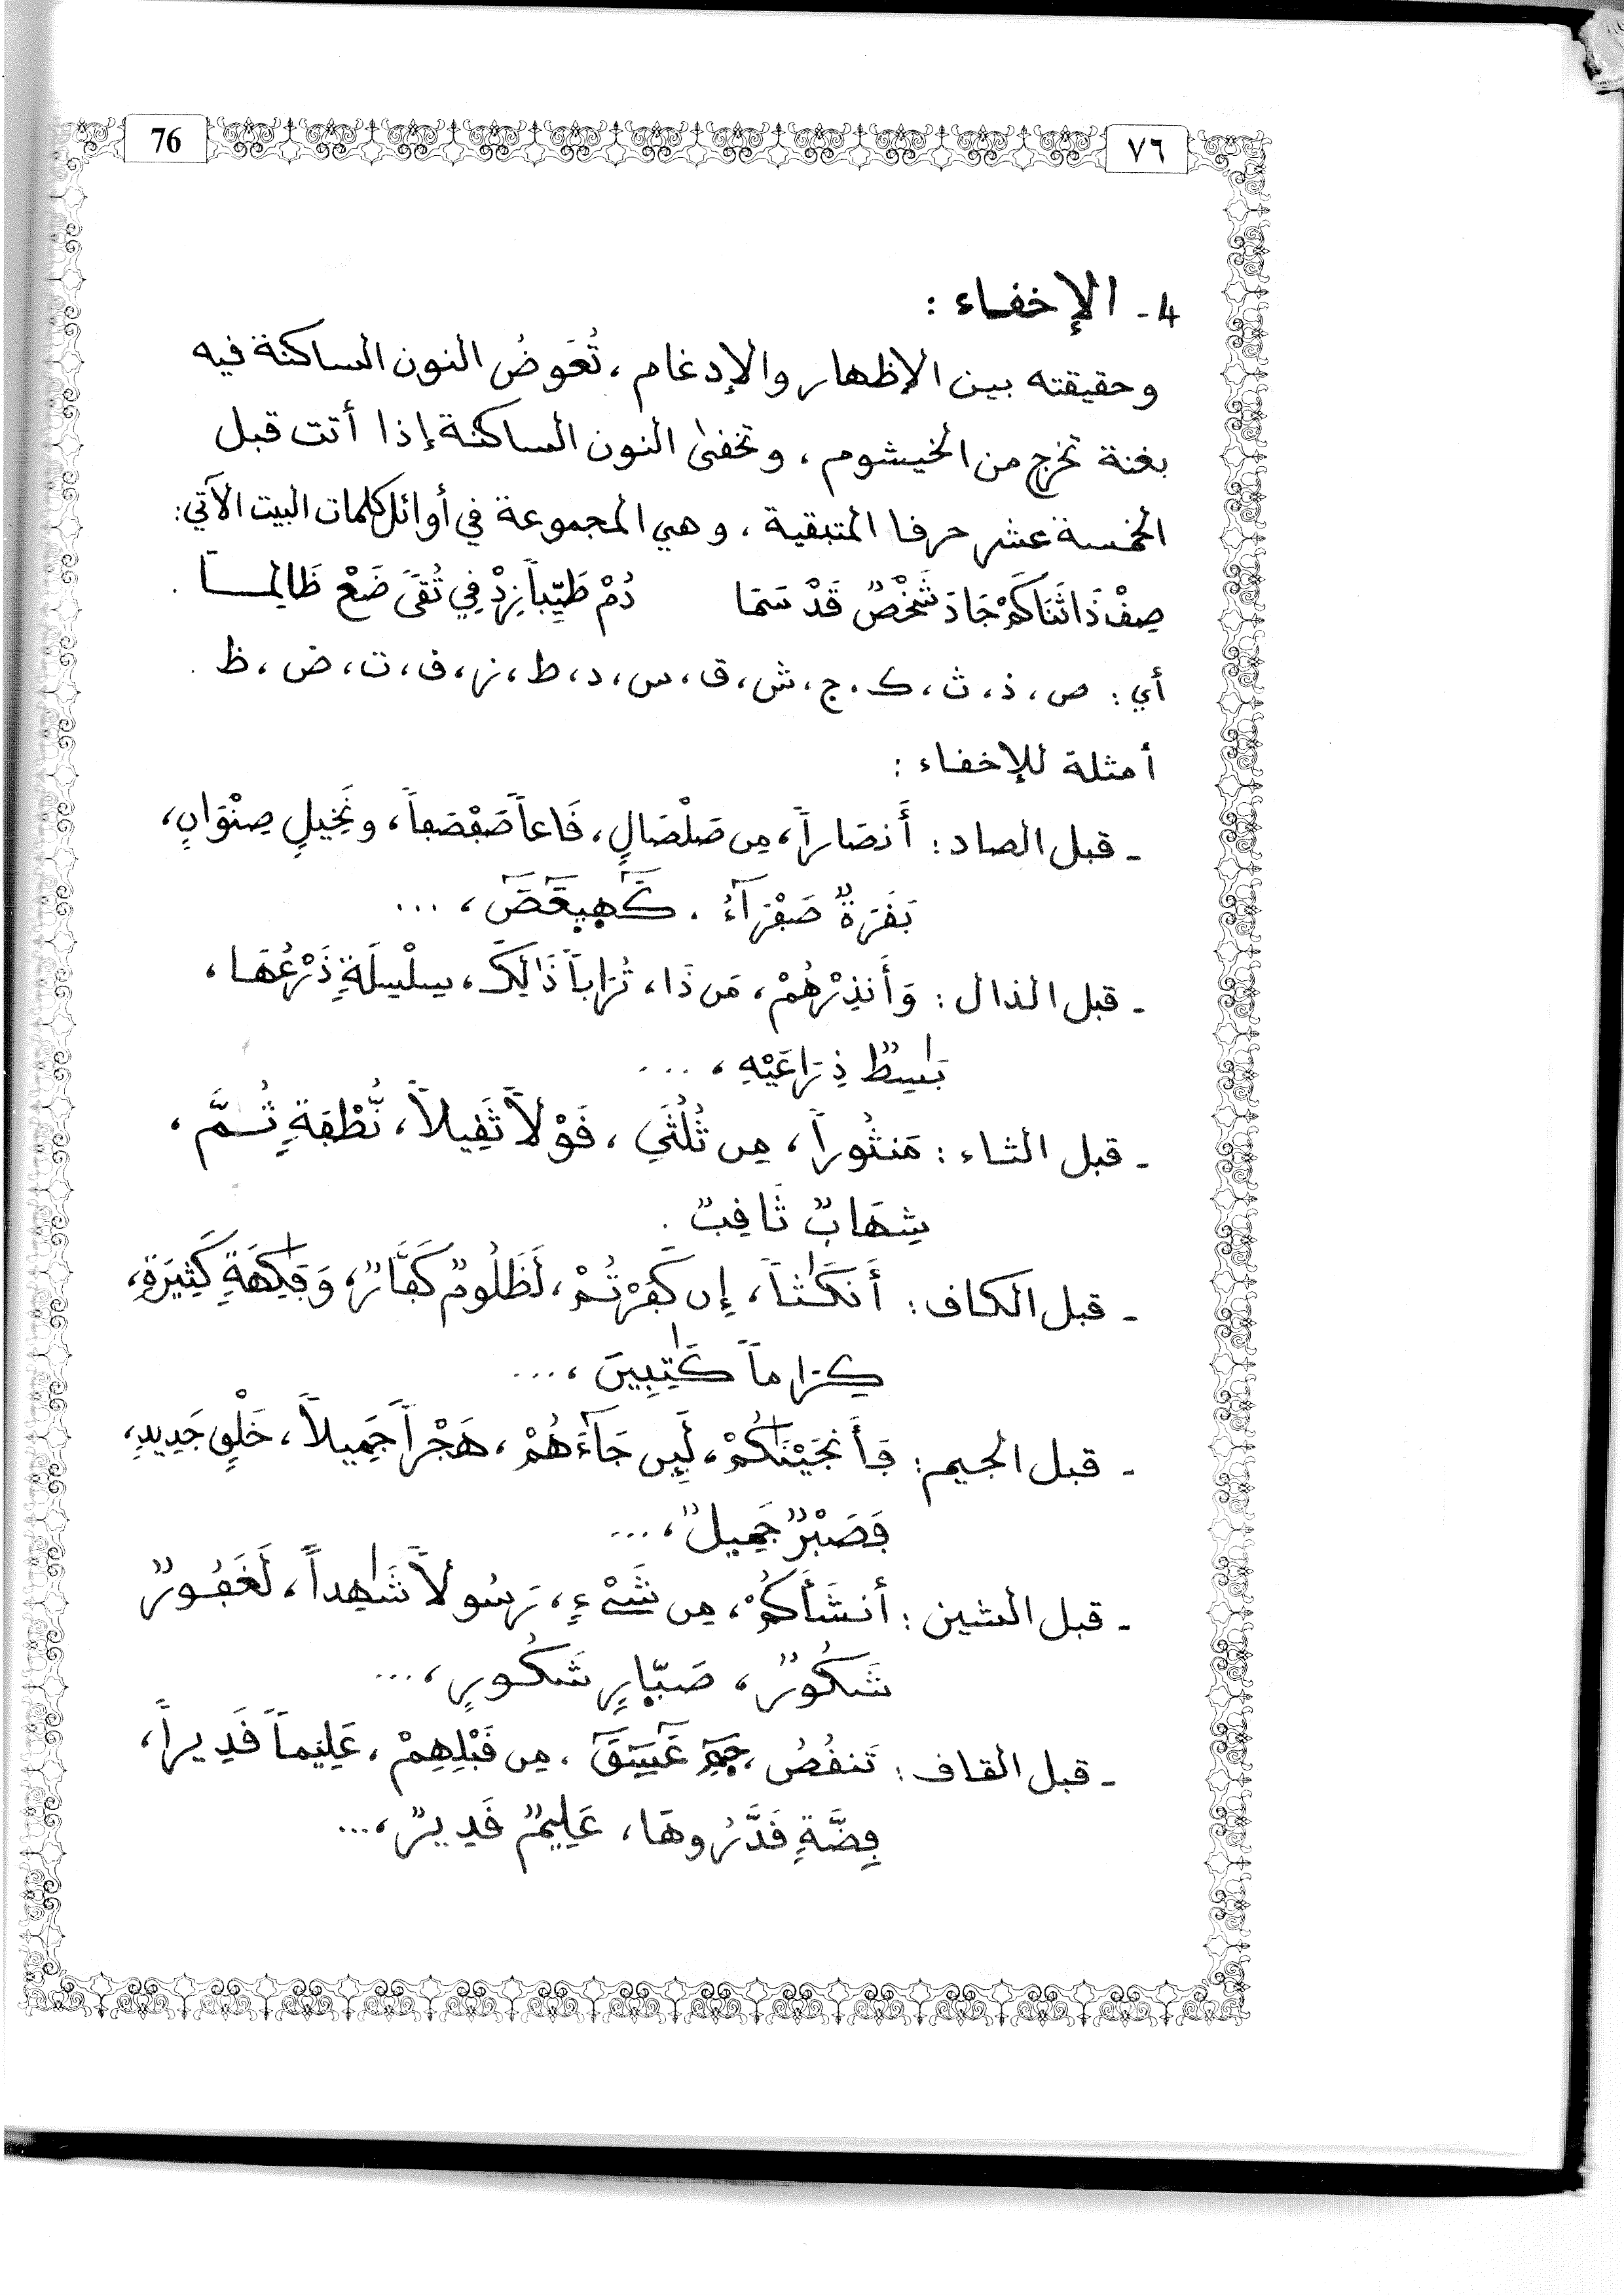 76 ٧٦
4 - الإخفاء :
وحقيقته بين الإظهار والإدغام ، تُعَوضُ النون الساكنة فيه
بغنة تخرج من الخيشوم ، وتخفىٰ النون الساكنة إذا أتت قبل
الخمسة عشر حرفا المتبقية ، وهي المجموعة في أوائل كلمات البيت الآتي :
صِفْ ذَا ثَنَا كَمْ جَادَ شَخْصٌ قَدْ سَمَا دُمْ طَيِّباً زِدْ فِي تُقىً ضَعْ ظَالِمــاً .
أي : ص ، ذ ، ث ، ك ، ج ، ش ، ق ، س ، د ، ط ، ز ، ف ، ت ، ض ، ظ .
أمثلة للإخفاء :
- قبل الصاد : أَنصَاراً ، مِن صَلْصَالٍ ، قَاعاً صَفْصَفاً ، ونَخِيلٍ صِنْوَانٍ ،
بَقَرَةٌ صَفْرَآءُ . كَٓهيعَٓصَٓ ، ...
- قبل الذال : وَأَنذِرْهُمْ ، مَن ذَا ، تُرَاباً ذَٰلِكَ ، سِلْسِلَةٍ ذَرْعُهَا ،
بَٰسِطٌ ذِرَاعَيْهِ ، ...
- قبل الثاء : مَنثُوراً ، مِن ثُلُثَيِ ، قَوْلاً ثَقِيلاً ، نُّطْفَةٍ ثُــمَّ ،
شِهَابٌ ثَاقِبٌ .
- قبل الكاف : أَنكَٰثاً ، إِن كَفَرْتُمْ ، لَظَلُومٌ كَفَّارٌ ، وَفَٰكِهَةٍ كَثِيرَةٍ ،
كِرَاماً كَٰتِبِينَ ، ...
- قبل الجيم : فَأَنجَيْنَٰكُمْ ، لَئِن جَآءَهُمْ ، هَجْراً جَمِيلاً ، خَلْقٍ جَدِيدٍ ،
فَصَبْرٌ جَمِيلٌ ، ...
- قبل الشين : أَنشَأَكُمْ ، مِن شَيْءٍ ، رَسُولاً شَٰهِداً ، لَغَفُورٌ
شَكُورٌ ، صَبّارٍ شَكُورٍ ، ...
- قبل القاف : تَنقُصُ ، حَمِٓ عَٓسِٓقَٓ . مِن قَبْلِهِمْ ، عَلِيماً قَدِيراً ،
فِضَّةٍ قَدَّرُوهَا ، عَلِيمٌ قَدِيرٌ ، ...